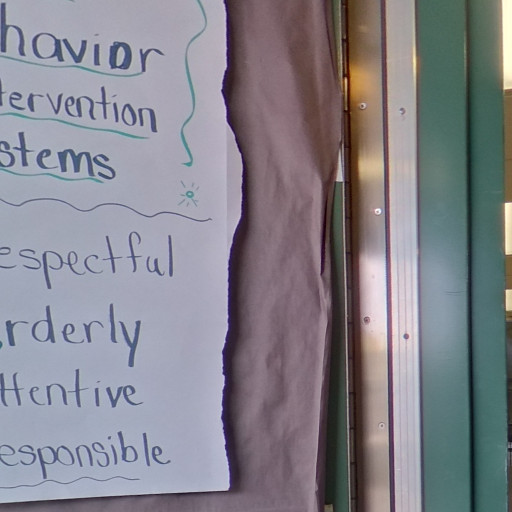 havior
tervention
stems
espectful
rderly
ttentive
esponsible